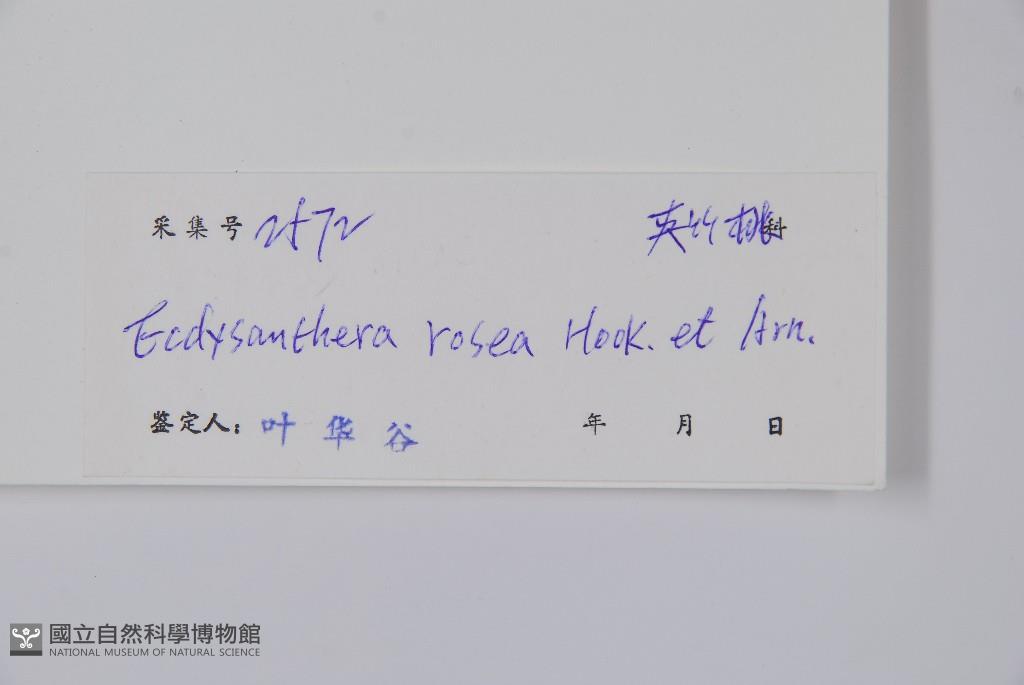 采集号 2572 夹竹桃科
Ecdysanthera rosea Hook. et Arn.
鉴定人: 叶华谷 年 月 日
國立自然科學博物館
NATIONAL MUSEUM OF NATURAL SCIENCE